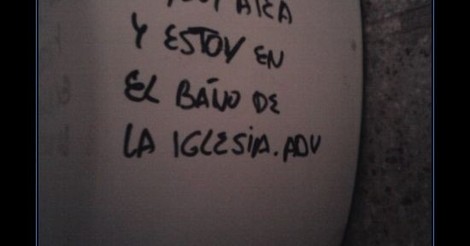 Y ESTOY EN
EL BAÑO DE
LA IGLESIA.ADV